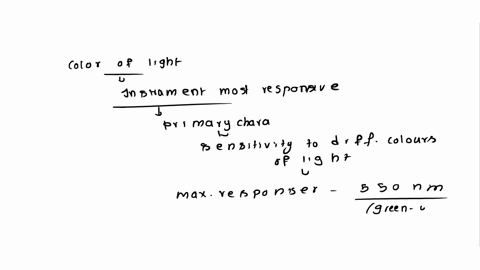 color of light
Instrament most responsive
primary chara
sensitivity to diff. colours
of light
max. responser - 550 nm
(green-